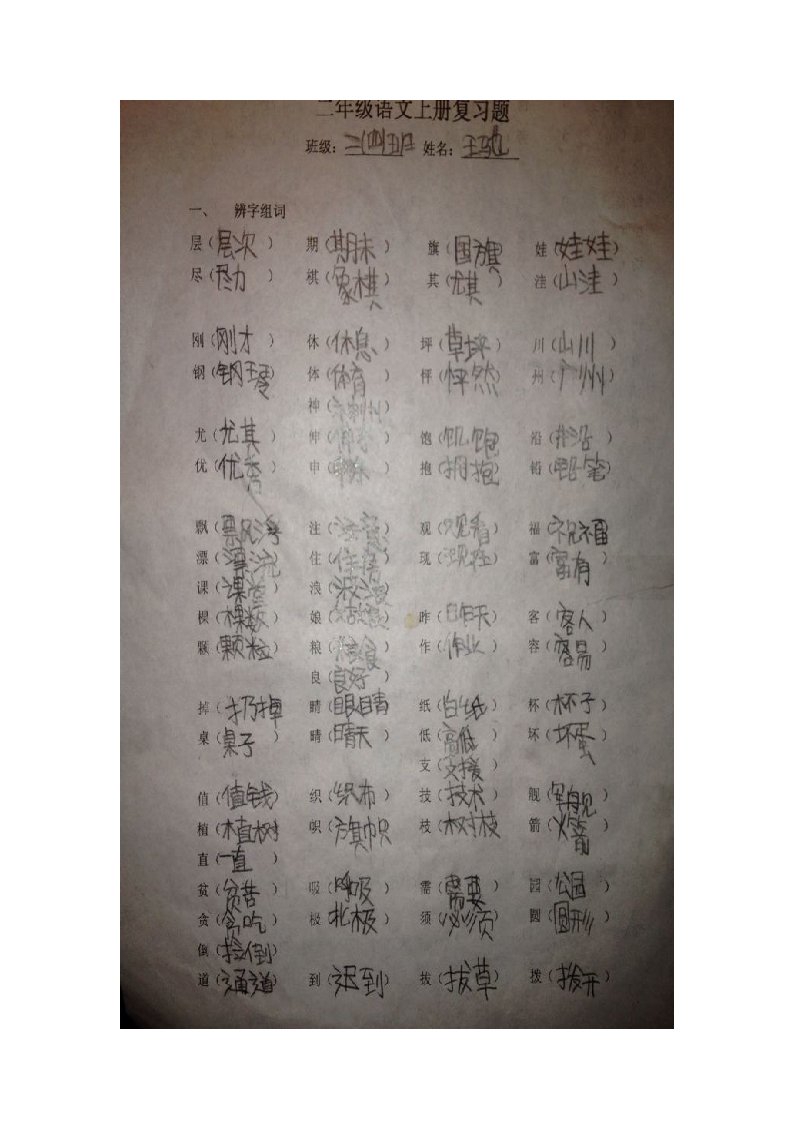 二年级语文上册复习题
班级： 姓名：
一、 辨字组词
层（层次） 期（期末） 旗（国旗） 娃（娃娃）
尽（尽力） 棋（象棋） 其（尤其） 洼（山洼）
刚（刚才） 休（休息） 坪（草坪） 川（山川）
钢（钢琴） 体（体育） 怦（怦然） 州（广州）
神（ ）
尤（尤其） 伸（ ） 饱（饥饱） 船（ ）
优（优秀） 申（ ） 抱（拥抱） 铅（铅笔）
飘（飘浮） 注（注意） 观（观看） 福（祝福）
漂（漂流） 住（ ） 现（现在） 富（富有）
课（课堂） 浪（ ）
棵（棵数） 娘（ ） 昨（昨天） 客（客人）
颗（颗粒） 粮（粮食） 作（作业） 容（容易）
良（良好）
掉（扔掉） 睛（眼睛） 纸（白纸） 杯（杯子）
桌（桌子） 晴（晴天） 低（高低） 坏（坏蛋）
支（支援）
值（值钱） 织（织布） 技（技术） 舰（军舰）
植（植树） 帜（旗帜） 枝（树枝） 箭（火箭）
直（一直）
贫（贫苦） 吸（呼吸） 需（需要） 园（公园）
贪（贪吃） 极（北极） 须（必须） 圆（圆形）
倒（ 倒）
道（通道） 到（迟到） 拔（拔草） 拨（拨开）